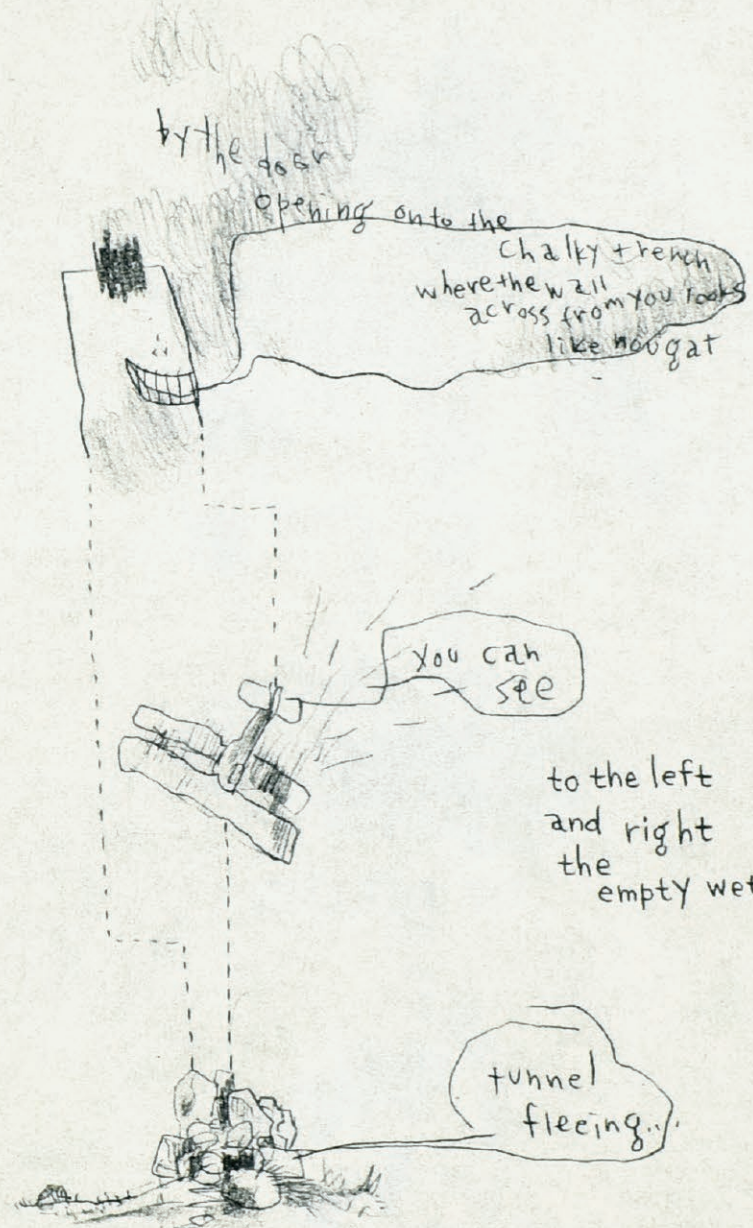 by the door
opening onto the
chalky trench
where the wall
across from you looks
like nougat
you can
see
to the left
and right
the
empty wet
tunnel
fleeing...